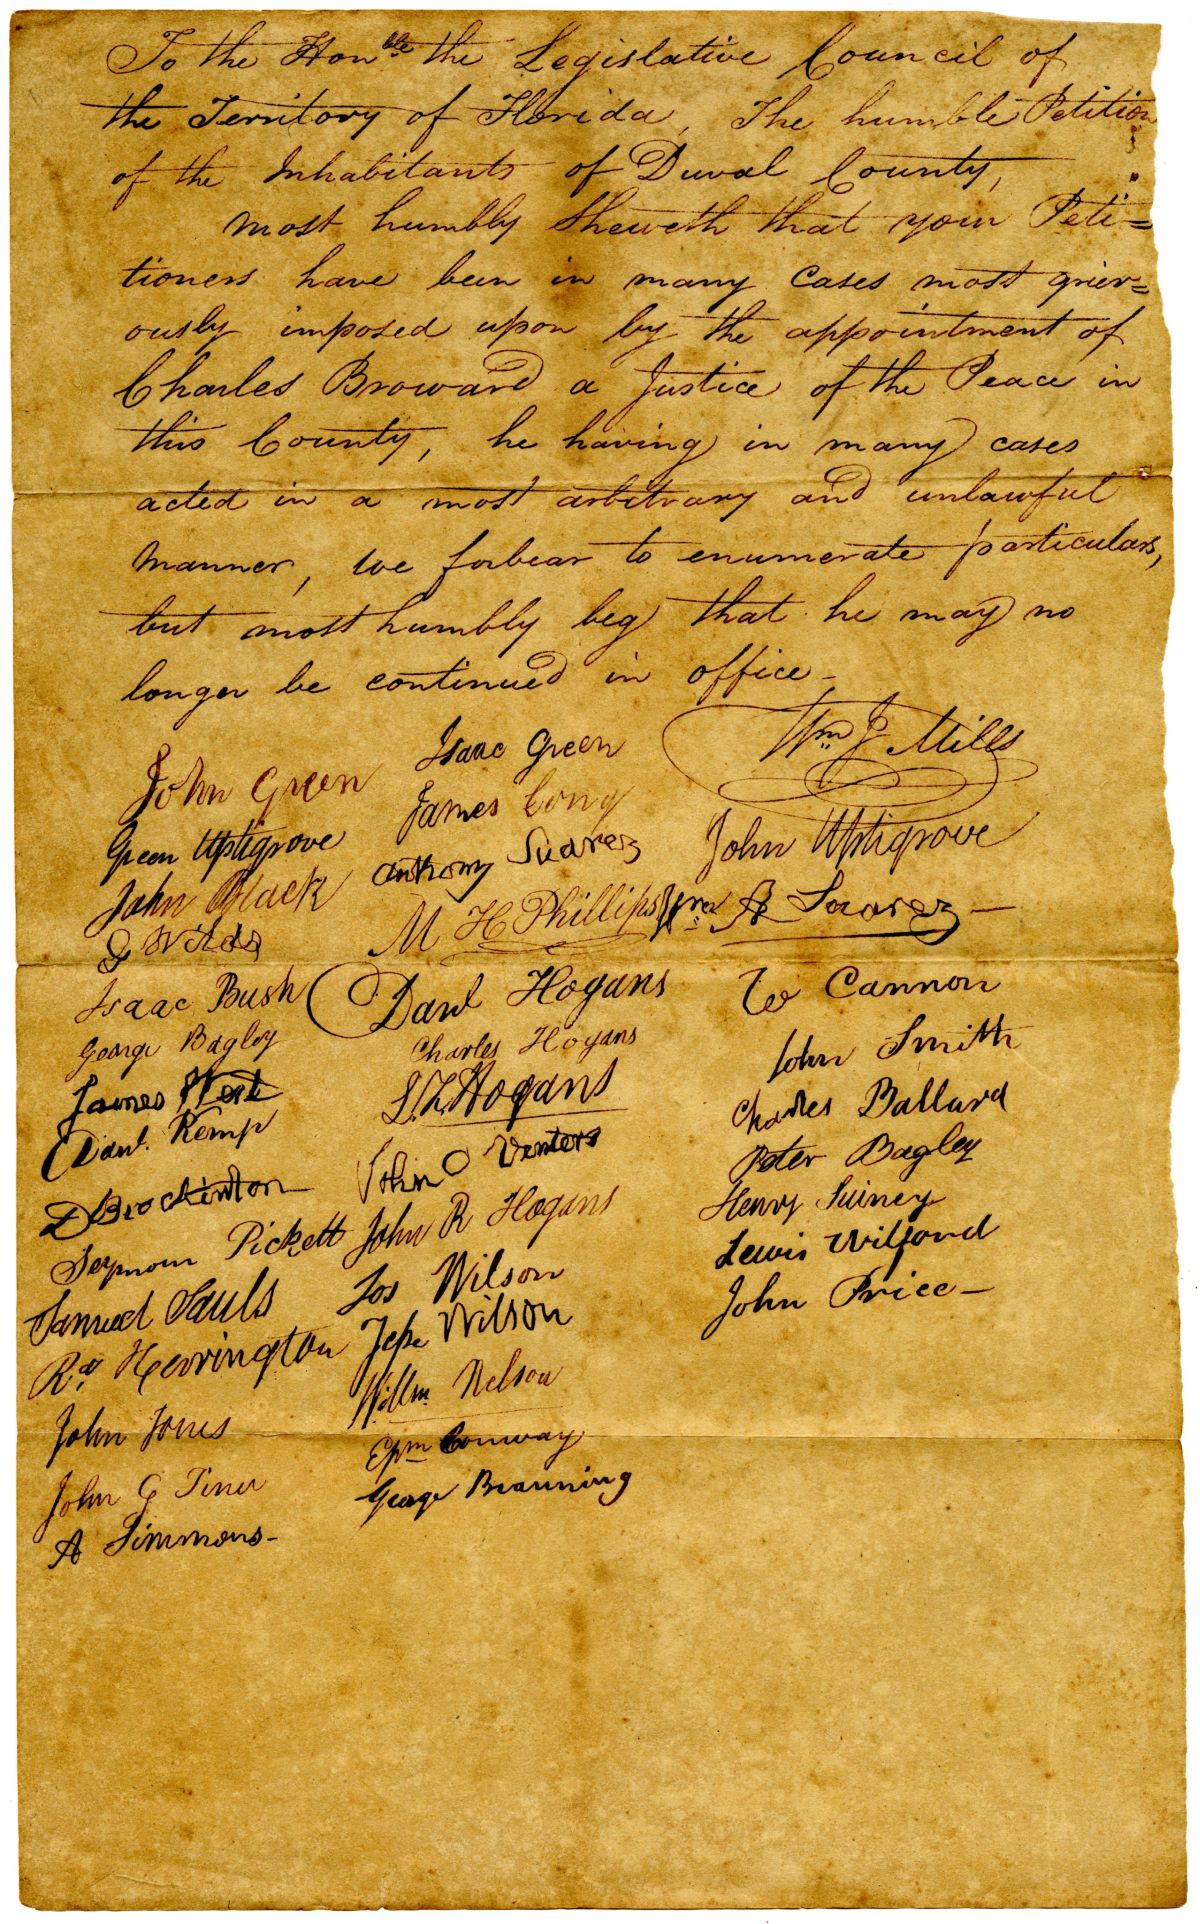 To the Honble the Legislative Council of
the Territory of Florida, The humble Petition
of the Inhabitants of Duval County,
most humbly Sheweth that your Peti=
tioners have been in many Cases most griev=
ously imposed upon by the appointment of
Charles Broward a Justice of the Peace in
this County, he having in many cases
acted in a most arbitrary and unlawful
manner, we forbear to enumerate particulars,
but most humbly beg that he may no
longer be continued in office -
John Green
Green Uptigrove
John Black
Wilds
Isaac Bush
George Bagley
James West
Danl. Kemp
D Brockinton
Seymour Pickett
Samuel Sauls
Rd. Herrington
John Jones
John G Tiner
A Simmons -
Isaac Green
James Cony
Anthony Suarez
M H Phillips
Danl Hogans
Charles Hogans
Hogans
John Venters
John R Hogans
Jos Wilson
Jesse Wilson
Willm. Nelson
Epm Conway
George Branning
Wm J Mills
John Uptigrove
A Suarez -
W Cannon
John Smith
Charles Ballard
Peter Bagley
Henry Suiney
Lewis Wilford
John Price -